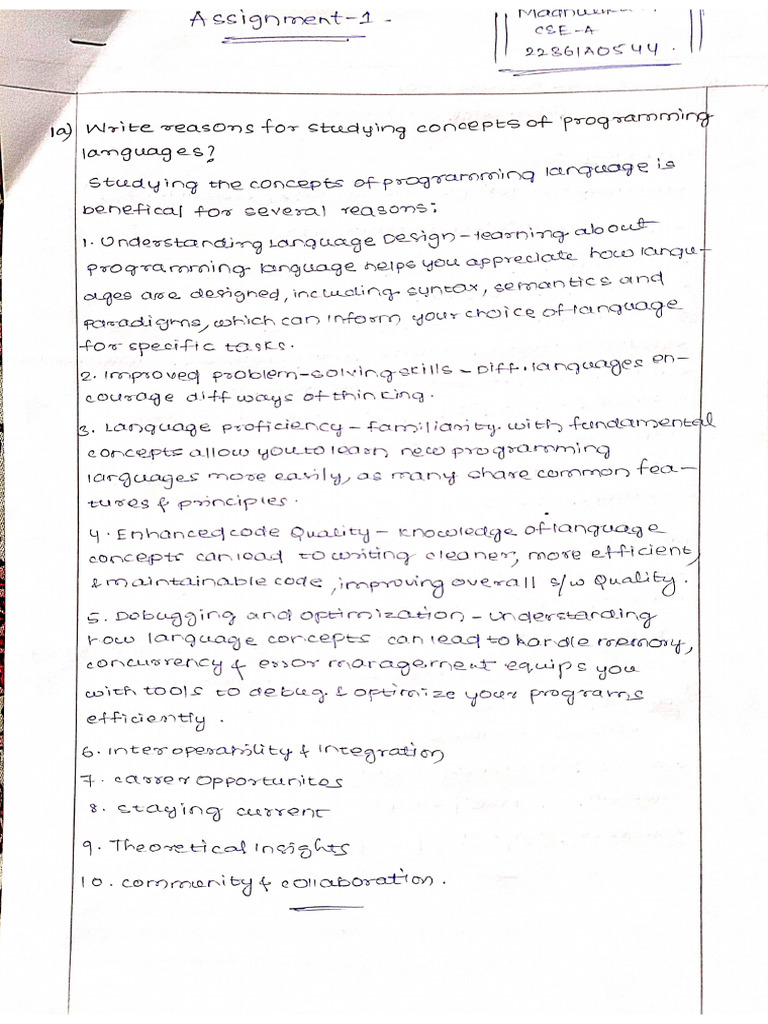 Assignment-1.
CSE-A
22861A0544.
1a) Write reasons for studying concepts of programming
languages?
Studying the concepts of programming language is
benefical for several reasons:
1. Understanding Language Design - learning about
programming language helps you appreciate how langu-
ages are designed, including syntax, semantics and
paradigms, which can inform your choice of language
for specific tasks.
2. Improved problem-solving skills - Diff. languages en-
courage diff ways of thinking.
3. Language proficiency - familiarity. with fundamental
concepts allow you to learn new programming
languages more easily, as many share common fea-
tures & principles.
4. Enhanced code Quality - Knowledge of language
concepts can lead to writing cleaner, more efficient,
& maintainable code, improving overall s/w Quality.
5. Debugging and optimization - understanding
how language concepts can lead to handle memory,
concurrency & error management equips you
with tools to debug & optimize your programs
efficiently.
6. Interoperability & Integration
7. carrer opportunites
8. staying current
9. Theoretical Insights
10. community & collaboration.